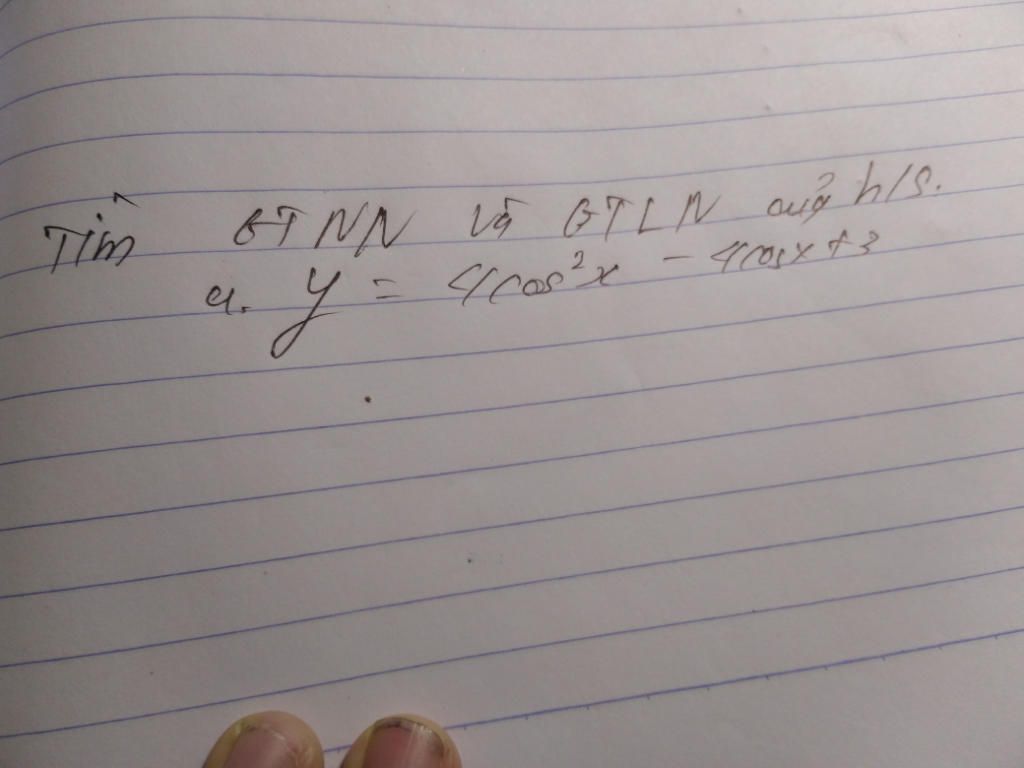 Tìm GTNN và GTLN của h/s.
a. y = 4cos²x - 4cosx + 3